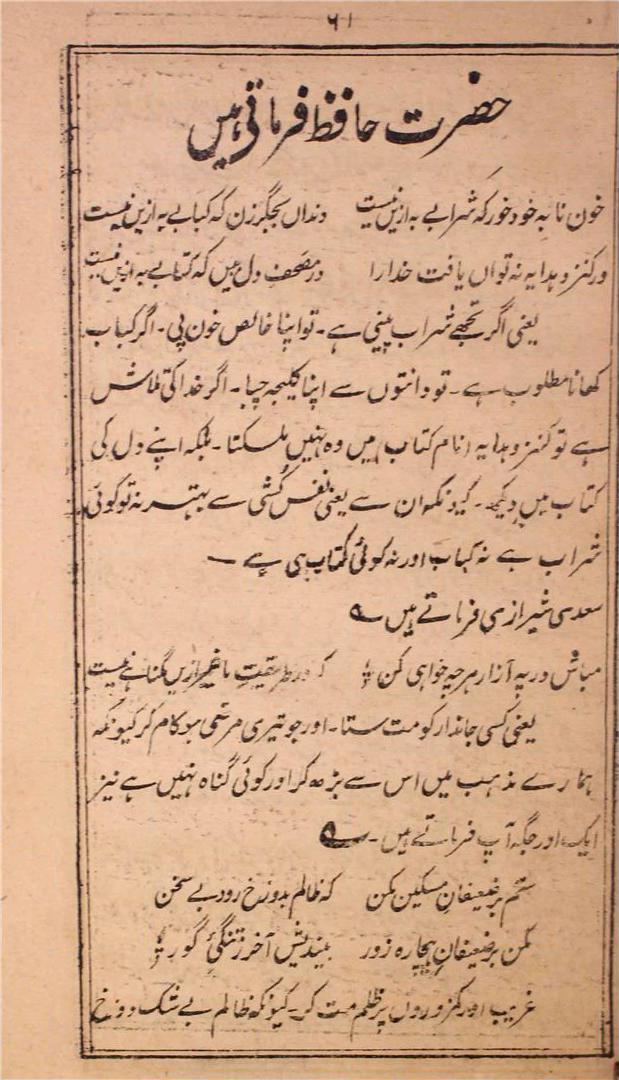 ۶۱
حضرت حافظ فرماتے ہیں
خون نابہ خود خور کہ شرابے بہ ازیں نیست دنداں بجگر زن کہ کبابے بہ ازیں نیست
در کنز و ہدایہ نہ تواں یافت خدا را در مصحف دل بیں کہ کتابے بہ ازیں نیست
یعنی اگر تجھے شراب پینی ہے۔ تو اپنا خالص خون پی۔ اگر کباب
کھانا مطلوب ہے۔ تو دانتوں سے اپنا کلیجہ چبا۔ اگر خدا کی تلاش
ہے تو کنز و ہدایہ (نام کتاب) میں وہ نہیں مل سکتا۔ بلکہ اپنے دل کی
کتاب میں دیکھ۔ کیونکہ ان سے یعنی نفس کُشی سے بہتر نہ تو کوئی
شراب ہے نہ کباب اور نہ کوئی کتاب ہی ہے ۔
سعدی شیرازی فرماتے ہیں ؎
مباش در پہ آزار ہر چہ خواہی کن کہ در طریقت ما غیر ازیں گناہے نیست
یعنی کسی جاندار کو مت ستا۔ اور جو تیری مرضی ہو کام کر کیونکہ
ہمارے مذہب میں اس سے بڑھ کر اور کوئی گناہ نہیں ہے نیز
ایک اور جگہ آپ فرماتے ہیں۔ ؎
ستم بر ضعیفان مسکین مکن کہ ظالم بدوزخ رود بے سخن
مکن بر ضعیفانِ بیچارہ زور بیندیش آخر ز تنگیٔ گور
غریب اور کمزوروں پر ظلم مت کر۔ کیونکہ ظالم بے شک دوزخ